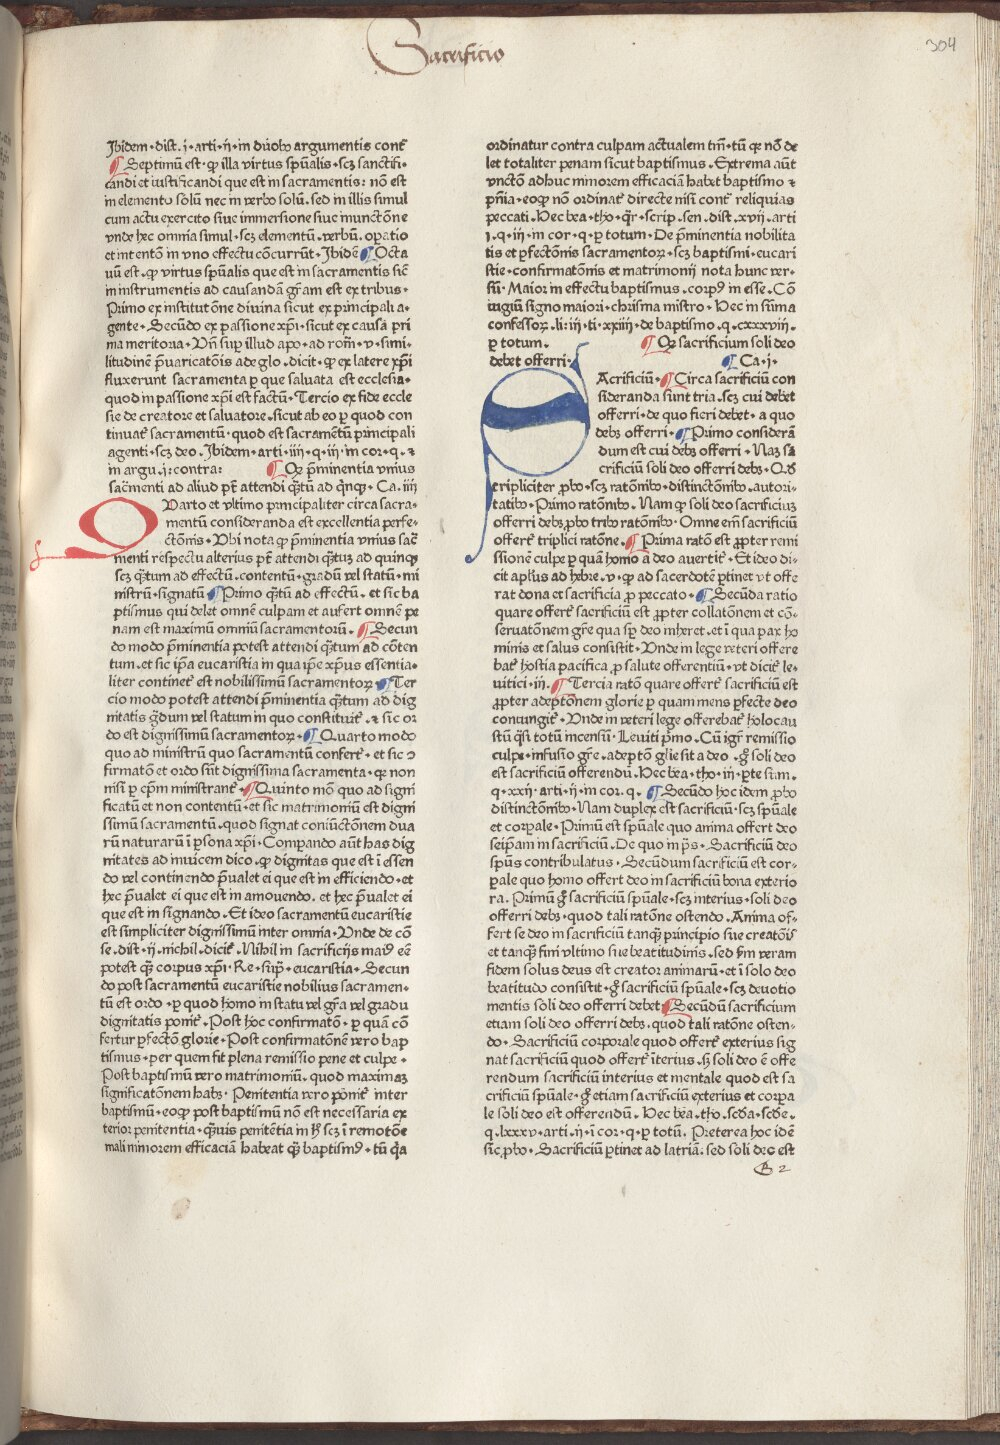 Sacrificio
304
Ibidem · dist . i · arti · ij · in duobꝰ argumentis cont̄
¶ Septimū est · ꝙ illa virtus spūalis · scꝫ sanctifi-
candi et iustificandi que est in sacramentis : nō est
in elemento solū nec in verbo solū . sed in illis simul
cum actu exercito siue immersione siue inunctōne
vnde hec omnia simul · scꝫ elementū . verbū . oꝑatio
et intentō in vno effectu cōcurrūt · Ibidē ¶ Octa
uū est · ꝙ virtus spūalis que est in sacramentis sic̄
in instrumentis ad causandā grāam est ex tribus ·
Primo ex institutōne diuina sicut ex principali a-
gente · Secūdo ex passione xp̄i · sicut ex causa pri
ma meritoria · Vn̄ suꝑ illud apo · ad rom̄ · v · simi-
litudinē p̄uaricatōis ade glo . dicit · ꝙ ex latere xp̄i
fluxerunt sacramenta ꝑ que saluata est ecclesia ·
quod in passione xp̄i est factū · Tercio ex fide eccle
sie de creatore et saluatore . sicut ab eo ꝑ quod con
tinuat̄ sacramentū · quod est sacramētū principali
agenti · scꝫ deo . Ibidem · arti · iiij · q · iij · in cor · q · ⁊
in argu . i : contra : ¶ Qꝫ p̄minentia vnius
sac̄menti ad aliud pt̄ attendi q̄tū ad qͥnqꝫ · Ca . iiij
QVarto et vltimo principaliter circa sacra-
mentū consideranda est excellentia perfe-
ctōnis · Vbi nota ꝙ p̄minentia vnius sac̄
menti respectu alterius pt̄ attendi q̄tuꝫ ad quinqꝫ
scꝫ q̄tum ad effectū . contentū · gradū vel statū · mi
nistrū · signatū ¶ Primo q̄tū ad effectū . et sic ba
ptismus qui delet omnē culpam et aufert omnē pe
nam est maximū omniū sacramentorū . ¶ Secun
do modo p̄minentia potest attendi q̄tum ad cōten
tum . et sic ip̄a eucaristia in qua ip̄e xp̄us essentia-
liter continet̄ est nobilissimū sacramentoꝝ ¶ Ter
cio modo potest attendi p̄minentia q̄tum ad dig
nitatis gͣdum vel statum in quo constituit̄ . ⁊ sic or
do est dignissimū sacramentoꝝ · ¶ Quarto modo
quo ad ministrū quo sacramentū confert̄ · et sic ꝯ
firmatō et ordo sūt dignissima sacramenta · qꝫ non
nisi ꝑ ep̄m ministrant̄ · ¶ Quinto mō quo ad signi
ficatū et non contentū · et sic matrimoniū est digni
ssimū sacramentū . quod signat coniūctōnem dua
rū naturarū ī ꝑsona xp̄i · Compando aūt has dig
nitates ad inuicem dico . ꝙ dignitas que est ī essen
do vel continendo p̄ualet ei que est in efficiendo · et
hec p̄ualet ei que est in amouendo . et hec p̄ualet ei
que est in signando . Et ideo sacramentū eucaristie
est simpliciter dignissimū inter omnia · Vnde de cō
se . dist · ij · nichil . dicit̄ . Nihil in sacrificijs maiꝰ eē
potest qͣꝫ corpus xp̄i · Re · suꝑ · eucaristia · Secun
do post sacramentū eucaristie nobilius sacramen-
tū est ordo · ꝑ quod homo in statu vel grā vel gradu
dignitatis ponit̄ . Post hoc confirmatō · ꝑ quā cō
fertur ꝑfectō glorie · Post confirmatōnē vero bap
tismus · per quem fit plena remissio pene et culpe ·
Post baptismū vero matrimoniū . quod maximaꝫ
significatōnem habꝫ · Penitentia vero ponit̄ inter
baptismū · eoqꝫ post baptismū nō est necessaria ex
terior penitentia · qͣuis penitētia in hꝰ scꝫ ī remotōe
mali minorem efficaciā habeat qͣꝫ baptismꝰ · tū qͥa
ordinatur contra culpam actualem tm̄ · tū qꝫ nō de
let totaliter penam sicut baptismus . Extrema aūt
vnctō adhuc minorem efficaciā habet baptismo ⁊
pn̄ia · eoqꝫ nō ordinat̄ directe nisi cont̄ reliquias
peccati . Hec bea · tho · qͥr · scrip . sen . dist . xvij . arti
i · q · iij · in cor · q · ꝑ totum · De p̄minentia nobilita
tis et ꝑfectōnis sacramentoꝝ · scꝫ baptismi · eucari
stie · confirmatōnis et matrimonij nota hunc ver-
sū · Maior in effectu baptismus . corpꝰ in esse . Cō
iugiū signo maiori · chrisma mīstro · Hec in sūma
confessoꝝ . li · iij · ti · xxiiij · de baptismo . q . cxxxviij ·
ꝑ totum . ¶ Qꝫ sacrificium soli deo
debet offerri · ¶ Ca · i ·
SAcrificiū · ¶ Circa sacrificiū con
sideranda sunt tria · scꝫ cui debet
offerri · de quo fieri debet · a quo
debꝫ offerri · ¶ Primo considerā
dum est cui debꝫ offerri · Naꝫ sa
crificiū soli deo offerri debꝫ · Qd̄
tripliciter ꝓbo · scꝫ ratōnibꝰ · distinctōnibꝰ . autori-
tatibꝰ · Primo ratōnibꝰ . Nam ꝙ soli deo sacrificiuꝫ
offerri debꝫ ꝓbo tribꝰ ratōnibꝰ · Omne em̄ sacrificiū
offert̄ triplici ratōne . ¶ Prima ratō est ꝓpter remi
ssionē culpe ꝑ quā homo a deo auertit̄ · Et ideo di-
cit apl̄us ad hebre . v · ꝙ ad sacerdotē ꝑtinet vt offe
rat dona et sacrificia ꝓ peccato · ¶ Secūda ratio
quare offert̄ sacrificiū est ꝓpter collatōnem et cō-
seruatōnem grē qua suꝑ deo inheret . et ī qua pax ho
minis et salus consistit · Vnde in lege veteri offere
bat̄ hostia pacifica ꝓ salute offerentiū · vt dicit̄ le-
uitici · iij . ¶ Tercia ratō quare offert̄ sacrificiū est
ꝓpter adeptōnem glorie ꝑ quam mens ꝑfecte deo
coniungit̄ · Vnde in veteri lege offerebat̄ holocau
stū qͣsi totū incensū · Leuiti p̄mo . Cū igr̄ remissio
culpe · infusio grē · adeptō gl̄ie sit a deo . gͦ soli deo
est sacrificiū offerendū . Hec bea · tho · iij · ꝑte sūm .
q · xxij · arti · ij · in cor . q . ¶ Secūdo hoc idem ꝓbo
distinctōnibꝰ · Nam duplex est sacrificiū · scꝫ spūale
et corꝑale · Primū est spūale quo anima offert deo
seip̄am in sacrificiū . De quo in p̄s · Sacrificiū deo
spūs contribulatus · Secūdum sacrificiū est cor-
ꝑale quo homo offert deo in sacrificiū bona exterio
ra . Primū gͦ sacrificiū spūale · scꝫ interius · soli deo
offerri debꝫ · quod tali ratōne ostendo . Anima of-
fert se deo in sacrificiū tanqͣꝫ principio sue creatōis
et tanqͣꝫ fini vltimo sue beatitudinis . sed ẜm veram
fidem solus deus est creator animarū · et ī solo deo
beatitudo consistit · gͦ sacrificiū spūale · scꝫ deuotio
mentis soli deo offerri debet ¶ Secūdū sacrificium
etiam soli deo offerri debꝫ . quod tali ratōne osten-
do · Sacrificiū corporale quod offert̄ exterius sig
nat sacrificiū quod offert̄ īterius . sꝫ soli deo ē offe
rendum sacrificiū interius et mentale quod est sa
crificiū spūale · gͦ etiam sacrificiū exterius et corpa
le soli deo est offerendū . Hec bea · tho · scd̄a · scd̄e ·
q . lxxxv · arti · ij · ī cor · q · ꝑ totū . Preterea hoc idē
sic ꝓbo · Sacrificiū ꝑtinet ad latriā : sed soli deo est
B 2